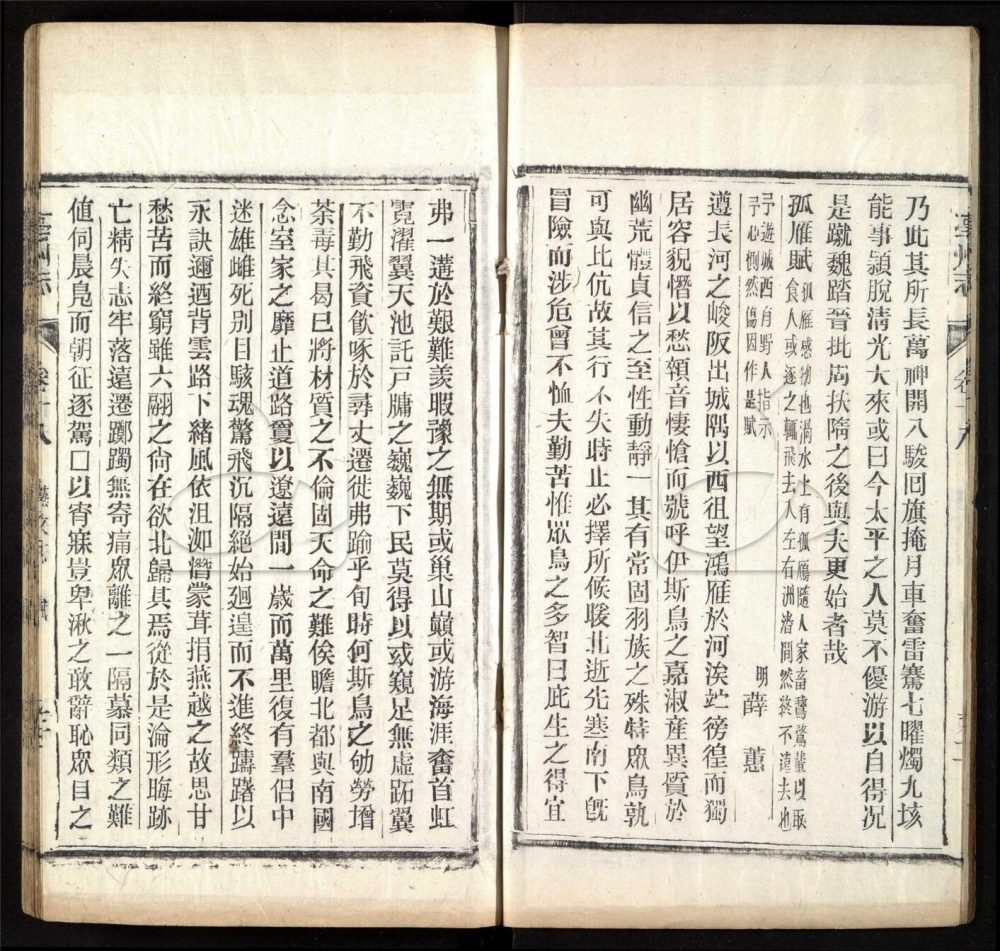 乃此其所長萬神開八駿回旗掩月車奮雷驀七曜燭九垓
能事頴脫淸光大來或曰今太平之人莫不優游以自得况
是蹴魏踏晉批周扶隋之後與夫更始者哉
孤雁賦孤雁感物也渦水上有孤雁隨人家畜鶩鶩輩以取
食人或逐之輒飛去人左右洲渚間然終不遠去也
予遊城西有野人指示
予心惻然傷因作是賦
明薛蕙
遵長河之峻阪出城隅以西徂望鴻雁於河涘竚徬徨而獨
居容貌憯以愁顇音悽愴而號呼伊斯鳥之嘉淑産異質於
幽荒體貞信之至性動靜一其有常固羽族之殊特衆鳥孰
可與比伉故其行不失時止必擇所候暖北逝先寒南下旣
冒險而涉危曾不恤夫勤苦惟衆鳥之多智曰此生之得宜
弗一遘於艱難羨暇豫之無期或巢山巔或游海涯奮首虹
霓濯翼天池託戸牖之巍巍下民莫得以或窺足無虛跖翼
不勤飛資飮啄於尋丈遷徙弗踰乎旬時何斯鳥之劬勞增
荼毒其曷已將材質之不倫固天命之難俟瞻北都與南國
念室家之靡止道路敻以遼遠間一歳而萬里復有羣侶中
迷雄雌死別目駭魂驚飛沉隔絕始廻遑而不進終躊躇以
永訣邇迺背雲路下緖風依沮洳潛蒙茸捐燕越之故思甘
愁苦而終窮雖六翮之尙在欲北歸其焉從於是淪形晦跡
亡精失志牢落遠遷躑躅無寄痛衆離之一隔慕同類之難
値伺晨鳧而朝征逐駕口以宵寐豈卑湫之敢辭恥衆目之
亳州志
卷十八
藝文
賦